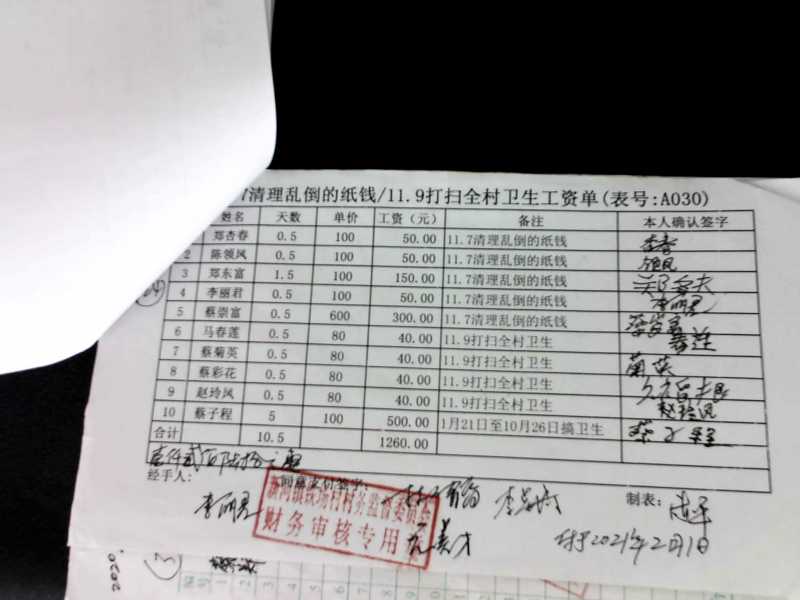 7清理乱倒的纸钱/11.9打扫全村卫生工资单(表号:A030)
姓名 天数 单价 工资（元） 备注 本人确认签字
郑杏春 0.5 100 50.00 11.7清理乱倒的纸钱 杏春
2 陈领凤 0.5 100 50.00 11.7清理乱倒的纸钱 领凤
3 郑东富 1.5 100 150.00 11.7清理乱倒的纸钱
4 李丽君 0.5 100 50.00 11.7清理乱倒的纸钱 李丽君
5 蔡崇富 0.5 600 300.00 11.7清理乱倒的纸钱 蔡崇富
6 马春莲 0.5 80 40.00 11.9打扫全村卫生 春莲
7 蔡菊英 0.5 80 40.00 11.9打扫全村卫生 菊英
8 蔡彩花 0.5 80 40.00 11.9打扫全村卫生
9 赵玲凤 0.5 80 40.00 11.9打扫全村卫生 赵玲凤
10 蔡子程 5 100 500.00 1月21日至10月26日搞卫生 蔡子程
合计 10.5 1260.00
壹仟贰佰陆拾元
经手人: 签字: 制表:
李丽君
村务监督委员会
财务审核专用章
2021年2月1日
2020.
3
编号 1 2 3 4 5 6 7